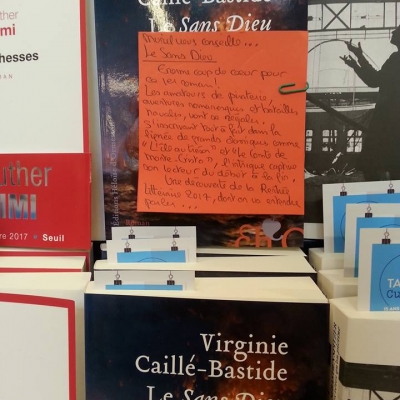 uther
mi
hesses
Caillé-Bastide
Le Sans Dieu
Muriel vous conseille...
Le Sans Dieu
Enorme coup de coeur pour
ce 1er roman!
Les amateurs de piraterie,
aventures romanesques et batailles
navales, vont se régaler.
S'inscrivant tout à fait dans la
lignée de grands classiques comme
"L'île au trésor" et "le Comte de
Monte-Cristo", l'intrigue capture
son lecteur du début à la fin.
Une découverte de la Rentrée
littéraire 2017, dont on va entendre
parler...
uther
IMI
re 2017 • Seuil
Virginie
Caillé-Bastide
Le Sans Dieu
TA
Cu